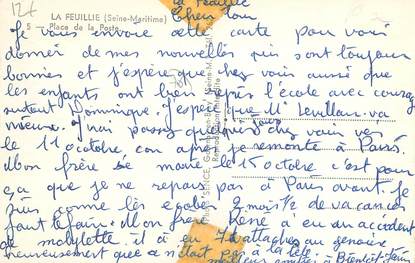 12f
la Feuillie
LA FEUILLIE (Seine-Maritime)
5 - Place de la Poste
Chers tous
Je vous envoie cette carte pour vous
donner de mes nouvelles qui sont toujours
bonnes et j'espère chez vous aussi que
les enfants ont bien repris l'école avec courage
surtout Dominique. J'espère que Mr Levillan va
mieux. J'irai passer quelques jours chez vous vers
le 11 octobre, car après je remonte à Paris.
Mon frère se marie le 15 octobre c'est pour
ça que je ne repars pas à Paris avant. Je
suis comme les écoles 2 mois ½ de vacances
faut le faire. Mon frère René a eu un accident
de mobylette. il a eu 7 attaches au genoux
heureusement que s'était pas à la tête.
meilleures amitiés à Bientôt